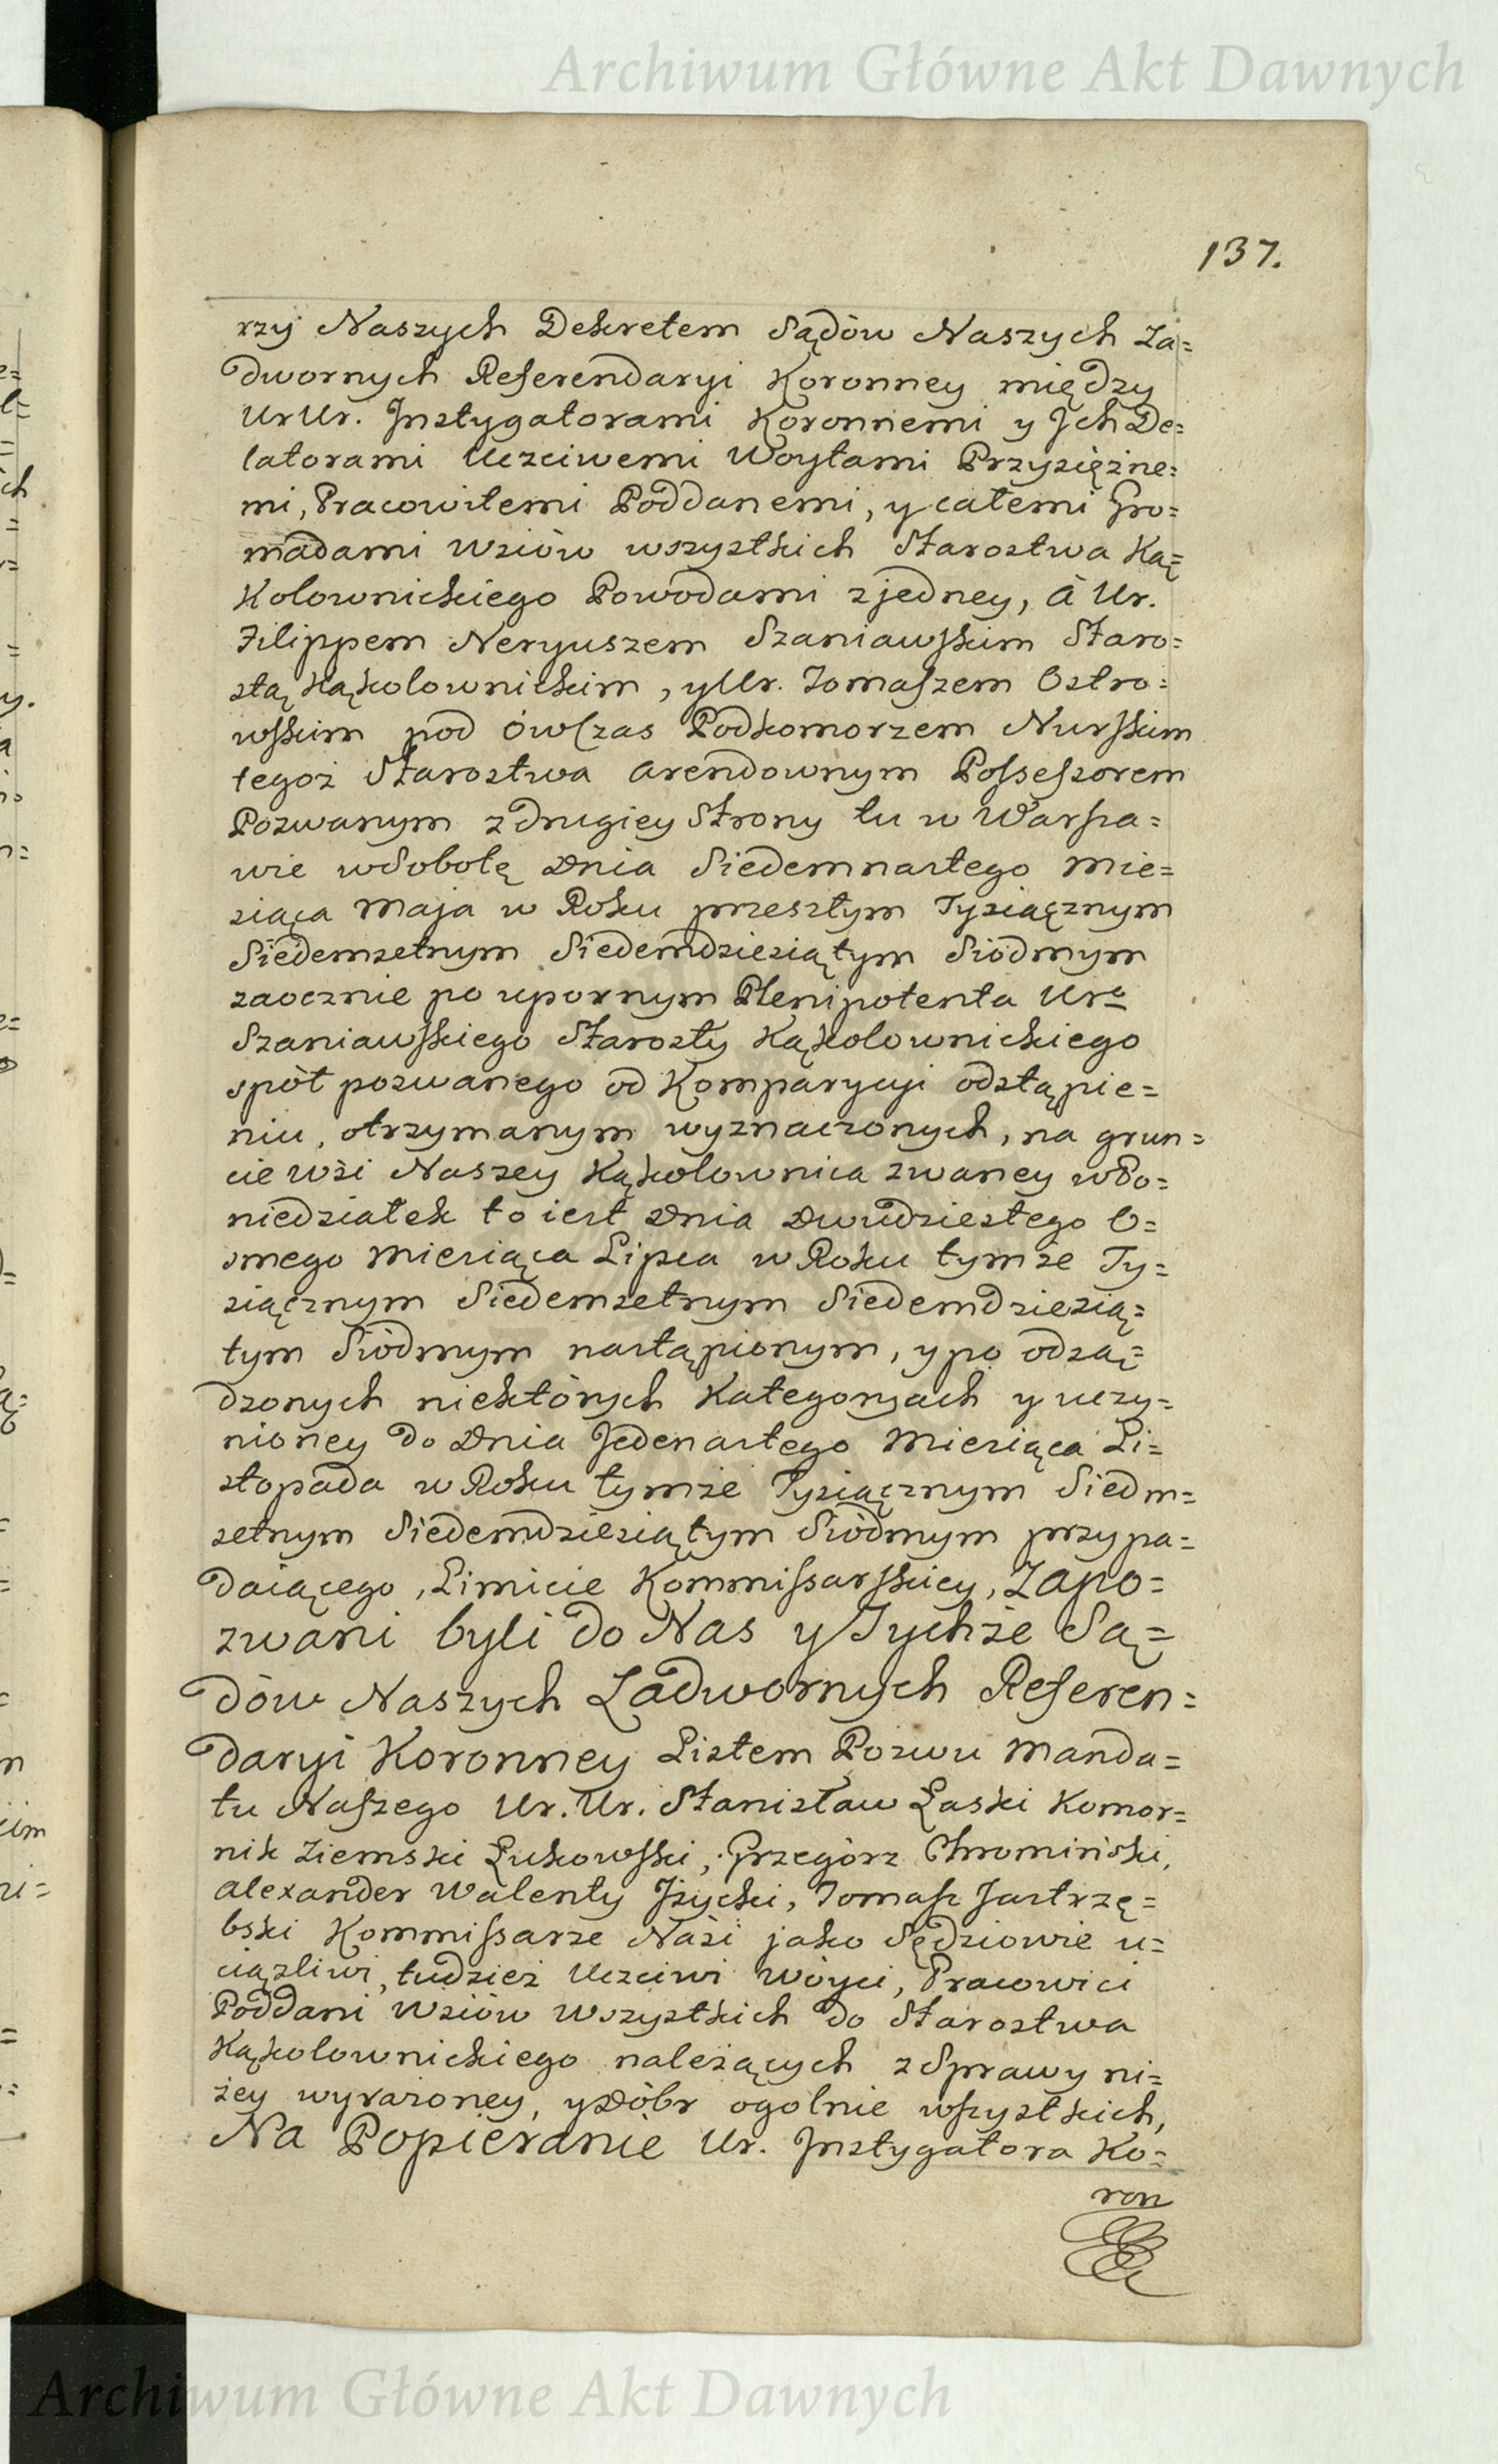 Archiwum Główne Akt Dawnych
137.
rzy Naszych Dekretem Sądów Naszych Za=
dwornych Referendaryi Koronney między
Ur Ur. Instygatorami Koronnemi y Jch De=
latorami Uczciwemi Woytami Przysiężne=
mi, Pracowitemi Poddanemi, y całemi Gro=
madami Wsiów wszystkich Starostwa Ką=
Kolownickiego Powodami z jedney, à Ur.
Filippem Neryuszem Szaniawskim Staro=
stą Kąkolownickim, y Ur. Tomaszem Ostro=
wskim pod ówczas Podkomorzem Nurskim
tegoż Starostwa arendownym Possessorem
Pozwanym z drugiey Strony tu w Warsza=
wie w Sobotę Dnia Siedemnastego Mie=
siąca Maja w Roku przeszłym Tysiącznym
Siedemsetnym Siedemdziesiątym Siodmym
zaocznie po upornym Plenipotenta Uro
Szaniawskiego Starosty Kąkolownickiego
spół pozwanego od Komparycyi odstąpie=
niu, otrzymanym wyznaczonych, na grun=
cie Wsi Naszey Kąkolownica zwaney w Po=
niedziałek to iest Dnia Dwudziestego O=
smego Miesiąca Lipca w Roku tymże Ty=
siącznym Siedemsetnym Siedemdziesią=
tym Siódmym nastąpionym, y po odsą=
dzonych niektórych Kategoryach y uczy=
nioney do Dnia Jedenastego Miesiąca Li=
stopada w Roku tymże Tysiącznym Siedm=
setnym Siedemdziesiątym Siódmym przypa=
daiącego, Limicie Kommissarskiey, Zapo=
zwani byli do Nas y Tychże Są=
dów Naszych Zadwornych Referen=
daryi Koronney Listem Pozwu Manda=
tu Naszego Ur. Ur. Stanisław Łaski Komor=
nik Ziemski Łukowski, Grzegórz Chromiński,
Alexander Walenty Jżycki, Tomasz Jastrzę=
bski Kommissarze Nasi jako Sędziowie u=
ciązliwi, tudzież Uczciwi Wóyci, Pracowici
Poddani Wsiów Wszystkich do Starostwa
Kąkolownickiego należących z Sprawy ni=
żey wyrażoney, y Dóbr ogolnie wszystkich,
Na Popieranie Ur. Jnstygatora Ko=
ron
Archiwum Główne Akt Dawnych